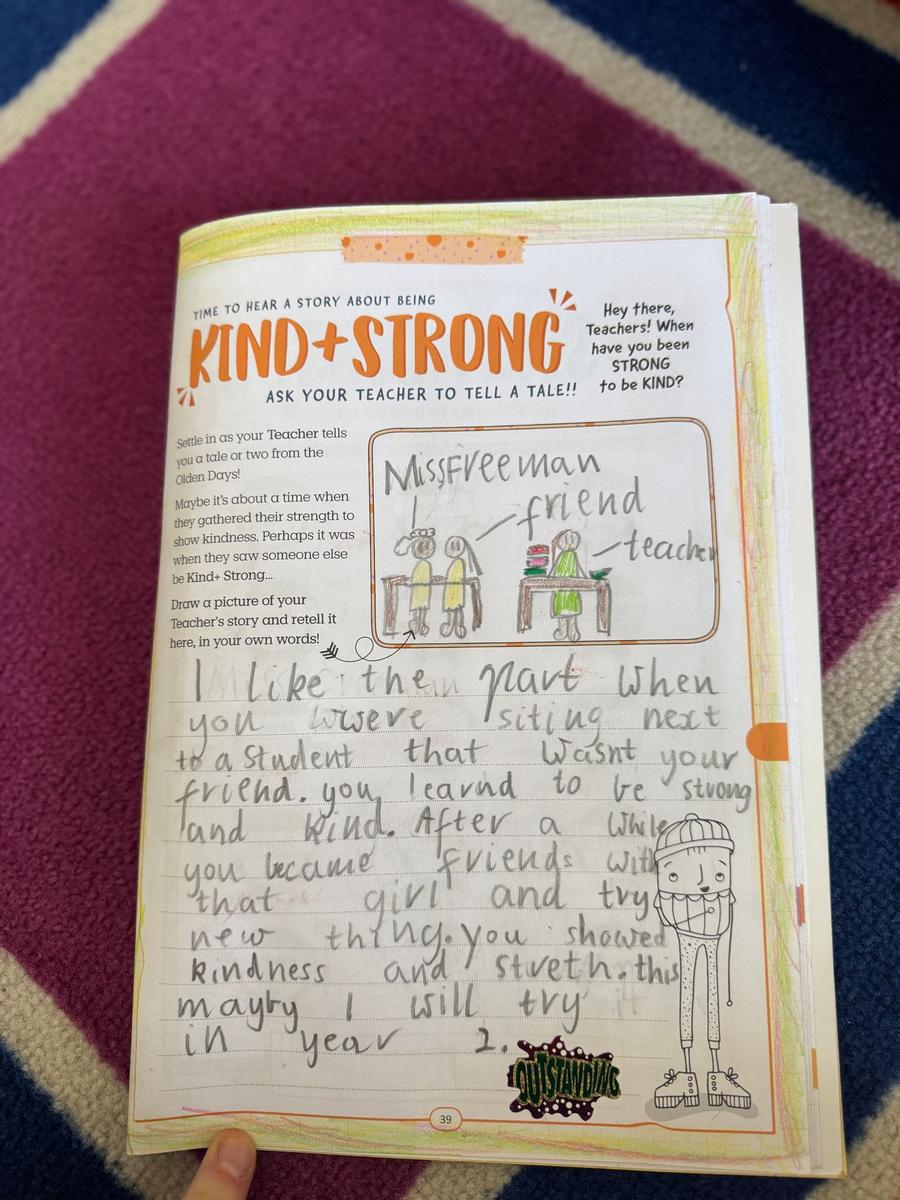 TIME TO HEAR A STORY ABOUT BEING
KIND+STRONG
ASK YOUR TEACHER TO TELL A TALE!!
Hey there,
Teachers! When
have you been
STRONG
to be KIND?
Settle in as your Teacher tells
you a tale or two from the
Olden Days!
Maybe it's about a time when
they gathered their strength to
show kindness. Perhaps it was
when they saw someone else
be Kind+ Strong...
Draw a picture of your
Teacher's story and retell it
here, in your own words!
MissFreeman
friend
teacher
I like the part when
you were siting next
to a student that wasnt your
friend. you learnd to be strong
and kind. After a while
you became friends with
that girl and try
new thing. you showed
kindness and streth. this
mayby I will try it
in year 2.
OUTSTANDING
39